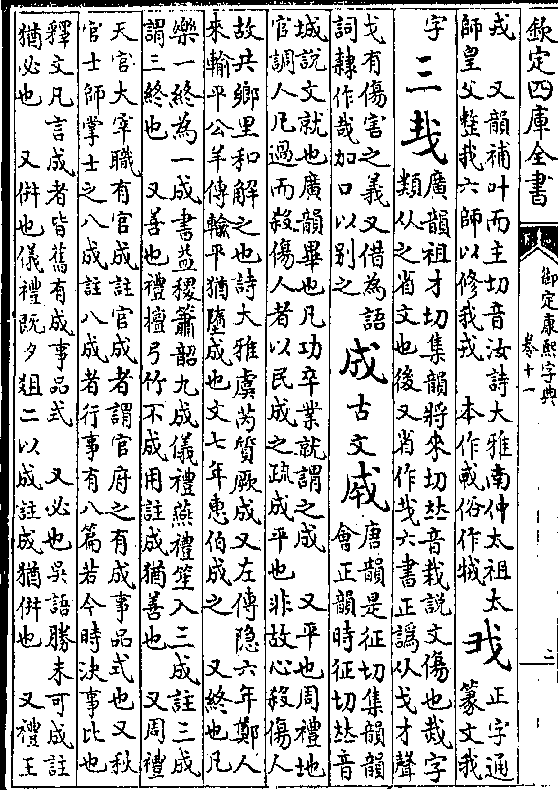 欽定四庫全書
御定康熙字典
卷十一
二
戎 又韻補叶而主切音汝詩大雅南仲太祖太
師皇父整我六師以修我戎 本作 俗作
正字通
篆文我
字
三 𢦏
廣韻祖才切集韻將來切𠀤音栽說文傷也 字
類从之省文也後又省作 六書正譌从戈才聲
戈有傷害之義又借為語
詞隸作哉加口以别之
成 古文
唐韻是征切集韻韻
會正韻時征切𠀤音
城說文就也廣韻畢也凡功卒業就謂之成 又平也周禮地
官調人凡過而殺傷人者以民成之疏成平也非故心殺傷人
故共鄉里和解之也詩大雅虞芮質厥成又左傳隱六年鄭人
來輸平公羊傳輸平猶墮成也文七年惠伯成之 又終也凡
樂一終為一成書益稷簫韶九成儀禮燕禮笙入三成註三成
謂三終也 又善也禮檀弓竹不成用註成猶善也 又周禮
天官大宰職有官成註官成者謂官府之有成事品式也又秋
官士師掌士之八成註八成者行事有八篇若今時決事比也
釋文凡言成者皆舊有成事品式 又必也吳語勝未可成註
猶必也 又併也儀禮既夕俎二以成註成猶併也 又禮王